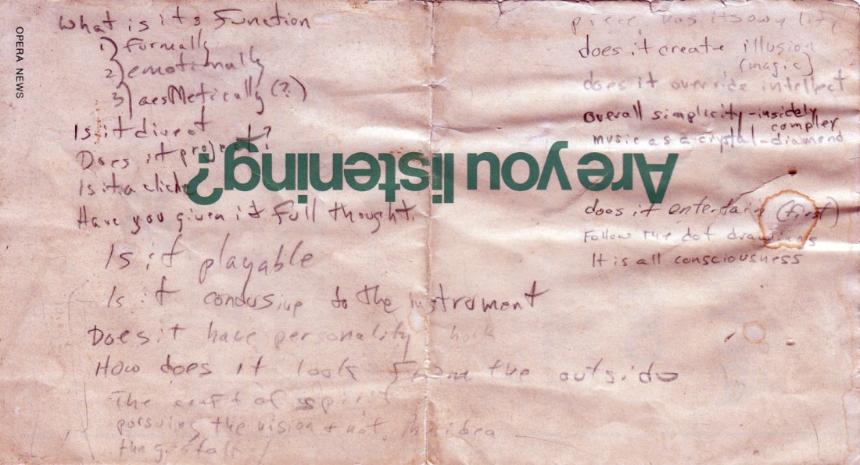 OPERA NEWS
What is its Function
1) formally
2) emotionally
3) aesthetically (?)
Is it direct
Does it project?
Is it a cliche
Have you given it full thought.
Is it playable
Is it condusive to the instrument
Does it have personality
How does it look from the outside
The craft of spirit
pursuing the vision + not the idea
the gestalt
Are you listening?
piece has its own life
does it create illusion
(magic)
does it override intellect
overall simplicity - insidely
complex
music as a crystal - diamond
does it entertain (first)
Follow the dot drawings
It is all consciousness